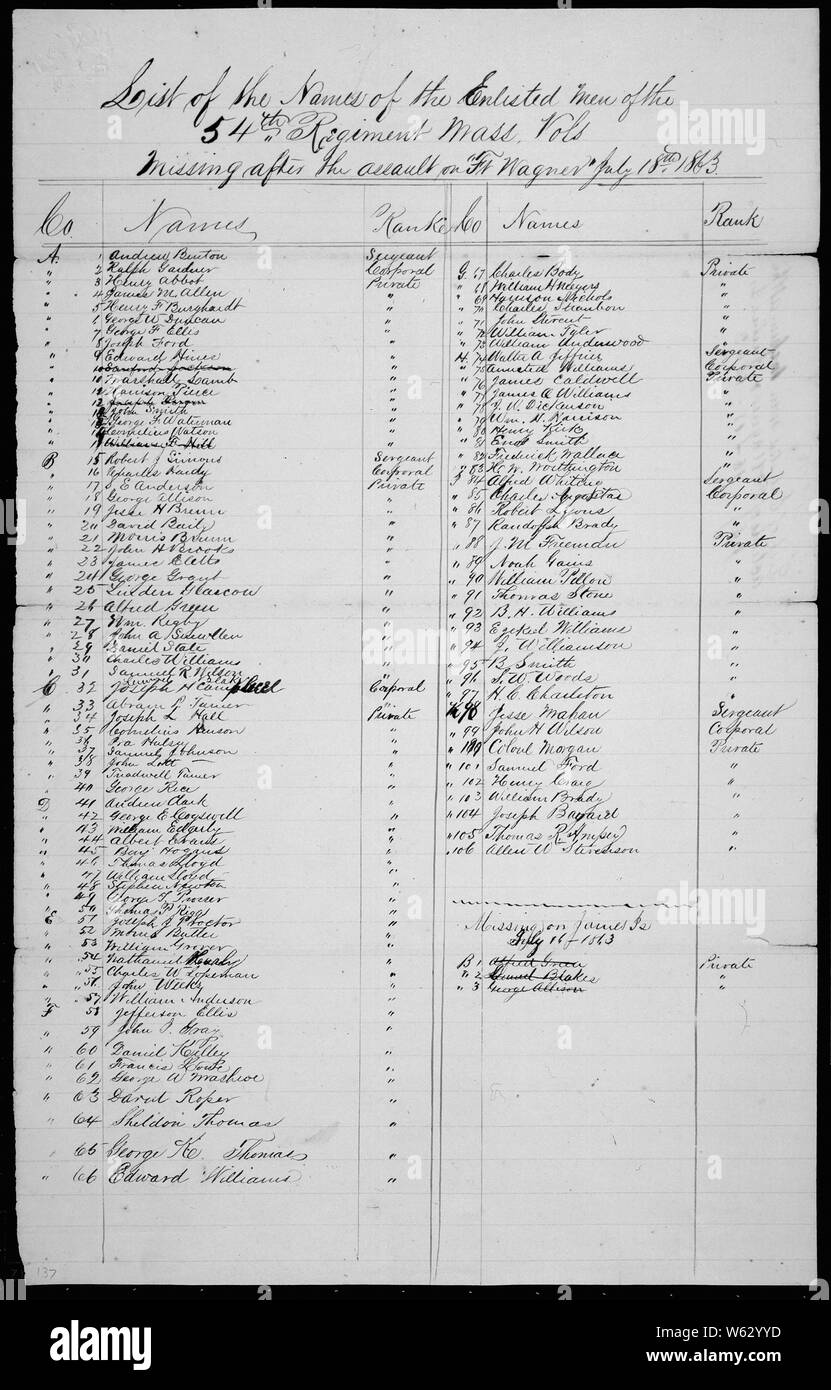 List of the Names of the Enlisted men of the
54th Regiment Mass. Vols
Missing after the assault on "Ft Wagner" July 18th 1863.
Co. Names Rank
A. 1 Andrew Benton Sergeant
" 2 Ralph Gardner Corporal
" 3 Henry Abbot Private
" 4 James M. Allen "
" 5 Henry F. Burghardt "
" 6 George W. Duncan "
" 7 George F. Ellis "
" 8 Joseph Ford "
" 9 Edward Hines "
" 10 Sanford Jackson "
" Marshall Lamb "
" Harrison Pierce "
" "
" John Smith "
" George F. Waterman "
" Cornelius Watson "
" William F. Hill "
B 15 Robert J. Simons Sergeant
" 16 Charles Hardy Corporal
" 17 S. E. Anderson Private
" 18 George Allison "
" 19 Jesse H. Brown "
" 20 David Baily "
" 21 Morris Brown "
" 22 John H Brooks "
" 23 James Eletts "
" 24 George Grant "
" 25 Linden Glascon "
" 26 Alfred Green "
" 27 Wm. Rigby "
" 28 John A "
" 29 Daniel State "
" 30 Charles Williams "
" 31 Samuel R. Wilson "
C 32 Joseph H Campbell Corporal
" 33 Abram P Turner "
" 34 Joseph L Hall Private
" 35 Cornelius Henson "
" 36 Ira Hulsey "
" 37 Samuel Johnson "
" 38 John Lott "
" 39 Treadwell Turner "
" 40 George Rice "
D 41 Andrew Clark "
" 42 George E. Cogswell "
" 43 William Edgerly "
" 44 Albert Evans "
" 45 Benj Hogans "
" 46 Thomas Lloyd "
" 47 William Lloyd "
" 48 Stephen Newton "
" 49 George T. Prosser "
" 50 Thomas P. Riggs "
E 51 Joseph J Proctor "
" 52 Morris Butler "
" 53 William Grover "
" 54 Nathaniel Hurley "
" 55 Charles W. Hopeman "
" 56 John Weeks "
" 57 William Anderson "
F 58 Jefferson Ellis "
" 59 John J. Gray "
" 60 Daniel Kelley "
" 61 Francis "
" 62 George W. "
" 63 David Roper "
" 64 Sheldon Thomas "
" 65 George K. Thomas "
" 66 Edward Williams "
Co Names Rank
G. 67 Charles Body Private
" 68 William H Meyers "
" 69 Harrison Nichols "
" 70 Charles Stanton "
" 71 John "
" 72 William Tyler "
" 73 William Underwood "
H. 74 Walter A Jeffries Sergeant
" 75 Armsted Williams Corporal
" 76 James Caldwell Private
" 77 James O. Williams "
" 78 J. W. Dickinson "
" 79 Wm. H. Harrison "
" 80 Henry Kirk "
" 81 Enos Smith "
" 82 Frederick Wallace "
" 83 H. W. Worthington "
I 84 Alfred Whiting Sergeant
" 85 Charles Augustas Corporal
" 86 Robert Lyons "
" 87 Randolph Brady "
" 88 J. M. Freeman Private
" 89 Noah Gains "
" 90 William Pillon "
" 91 Thomas Stone "
" 92 B. H. Williams "
" 93 Ezekiel Williams "
" 94 J. Williamson "
" 95 B. Smith "
" 96 T. W. Woods "
" 97 H. C. Charleston "
K 98 Jesse Mahan Sergeant
" 99 John H Wilson Corporal
" 100 Colonel Morgan Private
" 101 Samuel Ford "
" 102 Henry Craig "
" 103 William Brady "
" 104 Joseph Bayard "
" 105 Thomas R. Ampsey "
" 106 Allen W Stevenson "
Missing on James Is
July 16 - 1863
B 1 Alfred Green Private
" 2 Blakes "
" 3 George Allison "
137
alamy
Image ID: W62YYD
www.alamy.com